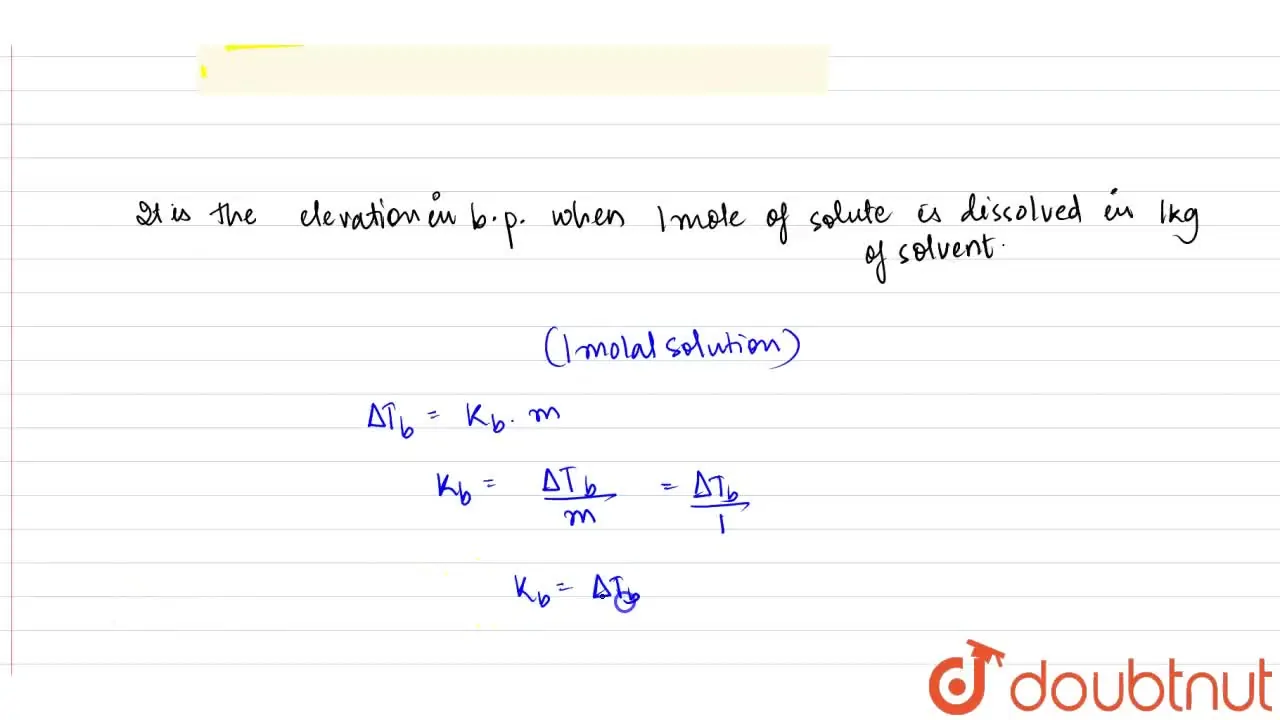 It is the elevation in b.p. when 1 mole of solute is dissolved in 1kg
of solvent.
(1 molal solution)
ΔTb = Kb. m
Kb = ΔTb/m = ΔTb/1
Kb = ΔTb
doubtnut